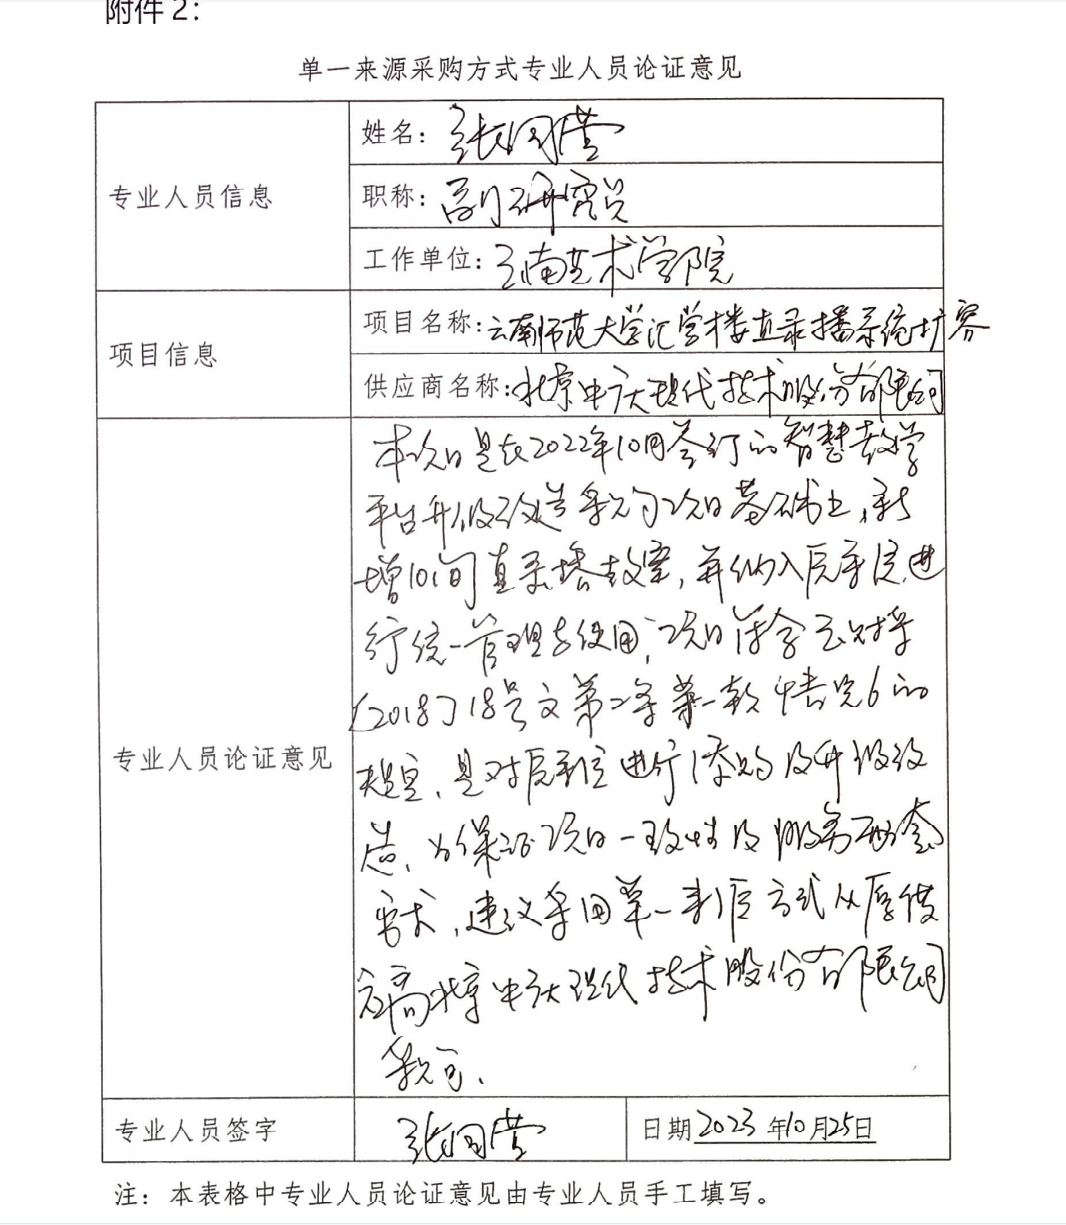 附件2：
单一来源采购方式专业人员论证意见
专业人员信息
姓名：张
职称：副研究员
工作单位：云南艺术学院
项目信息
项目名称：云南师范大学汇学楼直录播系统扩容
供应商名称：北京中庆现代技术股份有限公司
专业人员论证意见
本项目是在2022年10月签订的智慧教学
平台升级改造采购项目基础上，新
增10间直录播教室，并纳入原系统进
行统一管理与使用，项目符合云财采
〔2018〕18号文第二条第一款情况6的
规定，是对原系统进行添购及升级改
造，为保证项目一致性及服务配套
需求，建议采用单一来源方式从原供
应商北京中庆现代技术股份有限公司
采购。
专业人员签字
张
日期2023年10月25日
注：本表格中专业人员论证意见由专业人员手工填写。